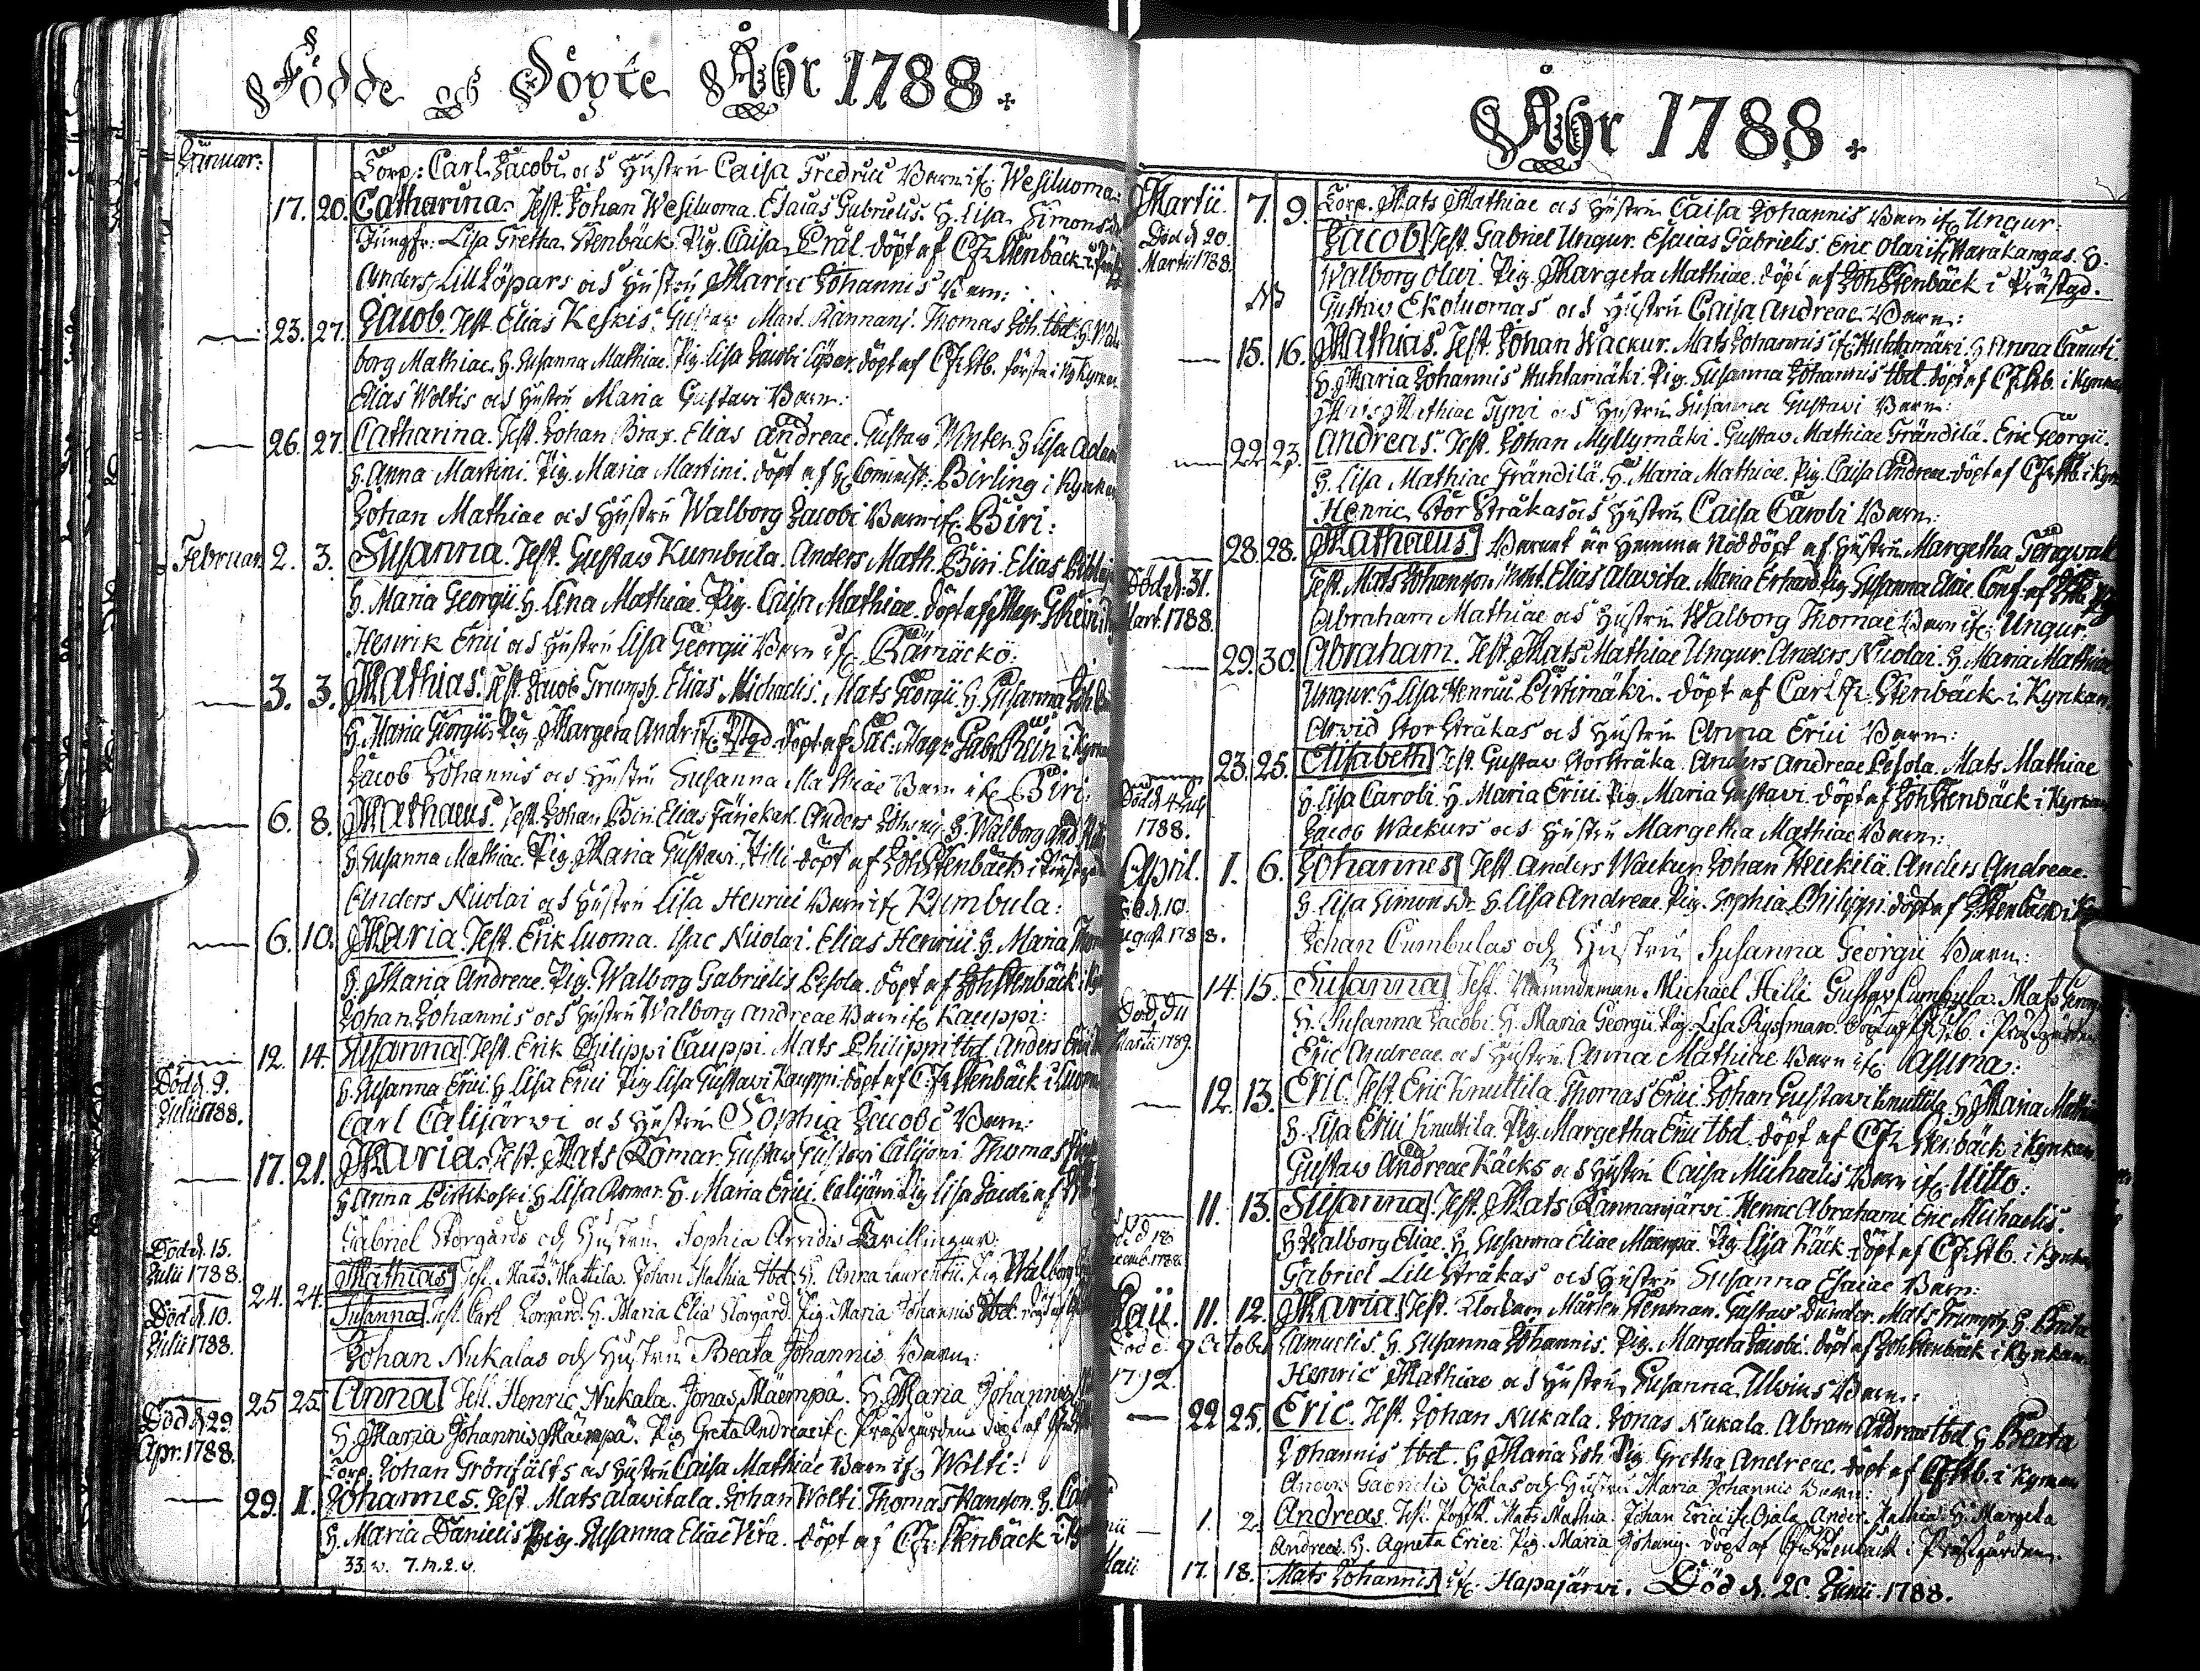 Födde och Döpte Åhr 1788.
Januar:
Torp: Carl Jacobi och Hustru Caisa Fredrici Barn if. Wesiluoma:
17. 20. Catharina. Test. Johan Wesiluoma. Esaias Gabrielis. H. Lisa Simons
Jungfr: Lisa Gretha Stenbäck. Pig. Caisa Prål. döpt af C. Fr. Stenbäck i
Anders Lill Löpars och Hustru Maria Johannis Barn:
23. 27. Jacob. Test. Elias Keskis. Gustav Mart. Rännanj. Thomas Joh. tbd. H. Wal
borg Mathiae. H. Susanna Mathiae. Pig. Lisa Jacobi Löpar. döpt af C. Fr. Stb. första i Kyrkan.
Elias Woltis och Hustru Maria Gustavi Barn:
26. 27. Catharina. Test. Johan Brax. Elias Andreae. Gustav Winter. H. Lisa Adam
H. Anna Martini. Pig. Maria Martini. döpt af H. Comminist: Birling i Kyrkan
Johan Mathiae och Hustru Walborg Jacobi Barn if. Biri:
Februar. 2. 3. Susanna. Test. Gustav Kumbula. Anders Math. Biri. Elias
H. Maria Georgii. H. Lena Mathiae. Pig. Caisa Mathiae. döpt af Magr.
Henrik Erici och Hustru Lisa Georgii Barn if. Rämäckö:
3. 3. Mathias. Test. Jacob Trumph. Elias Michaelis. Mats Georgii. H. Susanna Joh
H. Maria Georgii. Pig. Margeta Andr. if. Pstgd. döpt af Sac: Magr: Gabr. Rein i Kyrkan
Jacob Johannis och Hustru Susanna Mathiae Barn if. Biri:
6. 8. Mathaeus. Test. Johan Biri. Elias Fänjekar. Anders Johannis. H. Walborg And
H. Susanna Mathiae. Pig. Maria Gustavi Hilli. döpt af Joh. Stenbäck i Prästgd
Anders Nicolai och Hustru Lisa Henrici Barn if. Kumbula:
6. 10. Maria. Test. Erik Luoma. Isac Nicolai. Elias Henrici. H. Maria Thom
H. Maria Andreae. Pig. Walborg Gabrielis Pesola. döpt af Joh. Stenbäck i
Johan Johannis och Hustru Walborg Andreae Barn if. Kauppi:
12. 14. Susanna. Test. Erik Philippi Cauppi. Mats Philippi tbd. Anders Erici
Död d. 9.
Julii 1788.
H. Susanna Erici. H. Lisa Erici. Pig. Lisa Gustavi Kauppi. döpt af C. Fr. Stenbäck i Luoma
Carl Calijärwi och Hustru Sophia Jacobi Barn:
17. 21. Maria. Test. Mats Romar. Gustav Gustavi Calijärvi. Thomas
H. Anna Pirttikoski. H. Lisa Romar. H. Maria Erici. Calijärvi. Pig. Lisa Jacobi af
Gabriel Storgårds och Hustru Sophia Arvidi Tvillingar.
Död d. 15.
Julii 1788.
24. 24. Mathias. Test. Mats Mattila. Johan Mathiae tbd. H. Anna Laurentii. Pig. Walborg
Död d. 10.
Julii 1788.
Susanna. Test. Carl Storgård. H. Maria Elia Storgård. Pig. Maria Johannis tbd. döpt af
Johan Nukalas och Hustru Beata Johannis Barn:
25 25 Anna. Test. Henric Nukala. Jonas Mäempä. H. Maria Johannis
Död d. 29.
Apr. 1788.
H. Maria Johannis Mäempä. Pig. Greta Andreae if. Prästgården. döpt af
Torp. Johan Grönfälts och Hustru Caisa Mathiae Barn if. Wolti:
29. 1. Johannes. Test. Mats Alavitala. Johan Wolti. Thomas Hanson. H.
H. Maria Danielis. Pig. Susanna Eliae Vira. döpt af C. Fr. Stenbäck i
33. v. 7. n. 2. v.
Åhr 1788.
Martii. 7. 9. Torp. Mats Mathiae och Hustru Caisa Johannis Barn if. Ungur:
Död d. 20.
Martii 1788.
Jacob. Test. Gabriel Ungur. Esaias Gabrielis. Eric Olai if. Warakangas. H.
Walborg Olai. Pig. Margeta Mathiae. döpt af Joh. Stenbäck i Prästgd.
Gustav Ekoluomas och Hustru Caisa Andreae Barn:
15. 16. Mathias. Test. Johan Wackur. Mats Johannis if. Huhtamäki. H. Anna Canuti.
H. Maria Johannis Huhtamäki. Pig. Susanna Johannis tbd. döpt af C. Fr. Stb. i Kyrkan
Mats Mathiae Tyni och Hustru Susanna Gustavi Barn:
22. 23. Andreas. Test. Johan Myllymäki. Gustav Mathiae Frändilä. Eric Georgii.
H. Lisa Mathiae Frändilä. H. Maria Mathiae. Pig. Caisa Andreae. döpt af C. Fr. Stb. i Kyrk
Henric Stor Stråkas och Hustru Caisa Caroli Barn:
28. 28. Mathaeus. Barnet är hemma nöddöpt af Hustru Margetha Tengwall
Död d. 31.
Mart. 1788.
Test. Mats Johanson Elias Alavita. Maria Erhard. Pig. Susanna Eliae. Conf. af
Abraham Mathiae och Hustru Walborg Thomae Barn if. Ungur:
29. 30. Abraham. Test. Mats Mathiae Ungur. Anders Nicolai. H. Maria Mathiae
Ungur. H. Lisa Henrici Pirttimäki. döpt af Carl Fr. Stenbäck i Kyrkan.
Arvid Stor Stråkas och Hustru Anna Erici Barn:
23. 25. Elisabeth. Test. Gustav Storstråka. Anders Andreae Pesola. Mats Mathiae
Död d. 4 July
1788.
H. Lisa Caroli. H. Maria Erici. Pig. Maria Gustavi. döpt af Joh. Stenbäck i Kyrkan
Jacob Wackurs och Hustru Margetha Mathiae Barn:
April. 1. 6. Johannes. Test. Anders Wackur. Johan Heickilä. Anders Andreae.
Död d. 10.
August. 1788.
H. Lisa Simons Dr. H. Lisa Andreae. Pig. Sophia Philippi. döpt af Stenbäck i
Johan Cumbulas och Hustru Susanna Georgii Barn:
14. 15. Susanna. Test. Nämndeman Michael Hilli. Gustav Cumbula. Mats
Död d. 11
Martii 1789.
H. Susanna Jacobi. H. Maria Georgii. Pig. Lisa döpt af C. Fr. Stb. i Prästgården
Eric Andreae och Hustru Anna Mathiae Barn if. Lassuma:
12. 13. Eric. Test. Eric Knuttila. Thomas Erici. Johan Gustavi Knuttila. H. Maria Mathiae
H. Lisa Erici Knuttila. Pig. Margetha Erici tbd. döpt af C. Fr. Stenbäck i Kyrkan
Gustav Andreae Käcks och Hustru Caisa Michaelis Barn if. Uitto:
11. 13. Susanna. Test. Mats Rannanjärvi. Henric Abrahami. Eric Michaelis.
Död d. 18
Decemb. 1788.
H. Walborg Eliae. H. Susanna Eliae Mäempä. Pig. Lisa Käck. döpt af C. Fr. Stb. i Kyrkan
Gabriel Lill Stråkas och Hustru Susanna Esaiae Barn:
Maii. 11. 12. Maria. Test. Klockarn Mårten Stenman. Gustav Dunder. Mats Trumph. H. Brita
Död d. 9 October
1792.
Samuelis. H. Susanna Johannis. Pig. Margeta Jacobi. döpt af Joh. Stenbäck i Kyrkan.
Henric Mathiae och Hustru Susanna Ulvius Barn:
22 25. Eric. Test. Johan Nukala. Jonas Nukala. Abram Andreae tbd. H. Beata
Johannis tbd. H. Maria Joh. Pig. Gretha Andreae. döpt af C. Fr. Stb. i Kyrkan
Anders Gabrielis Ojalas och Hustru Maria Johannis Barn:
1. 2. Andreas. Test. Mats Mathiae. Johan Erici if. Ojala. Anders Mathiae. H. Margeta
Andreae. H. Agneta Erici. Pig. Maria Johannis. döpt af C. Fr. Stenbäck i Prästgården.
Maii 17. 18. Mats Johannis if. Hapajärvi. Död d. 20 Junii 1788.